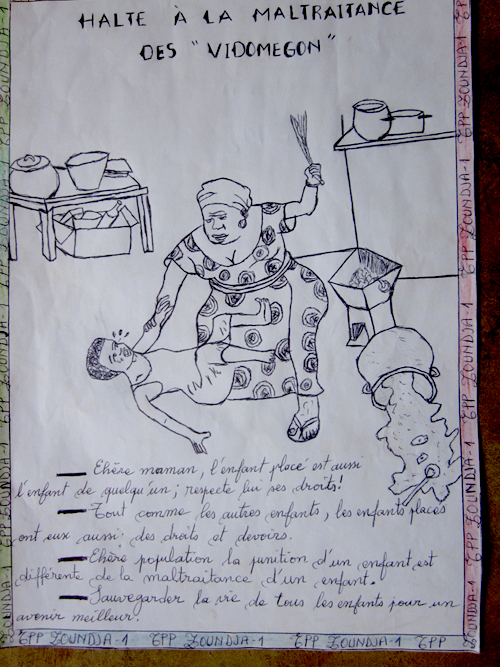 HALTE À LA MALTRAITANCE
DES "VIDOMEGON"
— Chère maman, l'enfant placé est aussi
l'enfant de quelqu'un; respecte lui ses droits!
— Tout comme les autres enfants, les enfants placés
ont eux aussi des droits et devoirs.
— Chère population la punition d'un enfant est
différente de la maltraitance d'un enfant.
— Sauvegarder la vie de tous les enfants pour un
avenir meilleur.
EPP ZOUNDJA-1 EPP ZOUNDJA-1 EPP ZOUNDJA-1 EPP
EPP ZOUNDJA-1 EPP ZOUNDJA-1 EPP ZOUNDJA-1